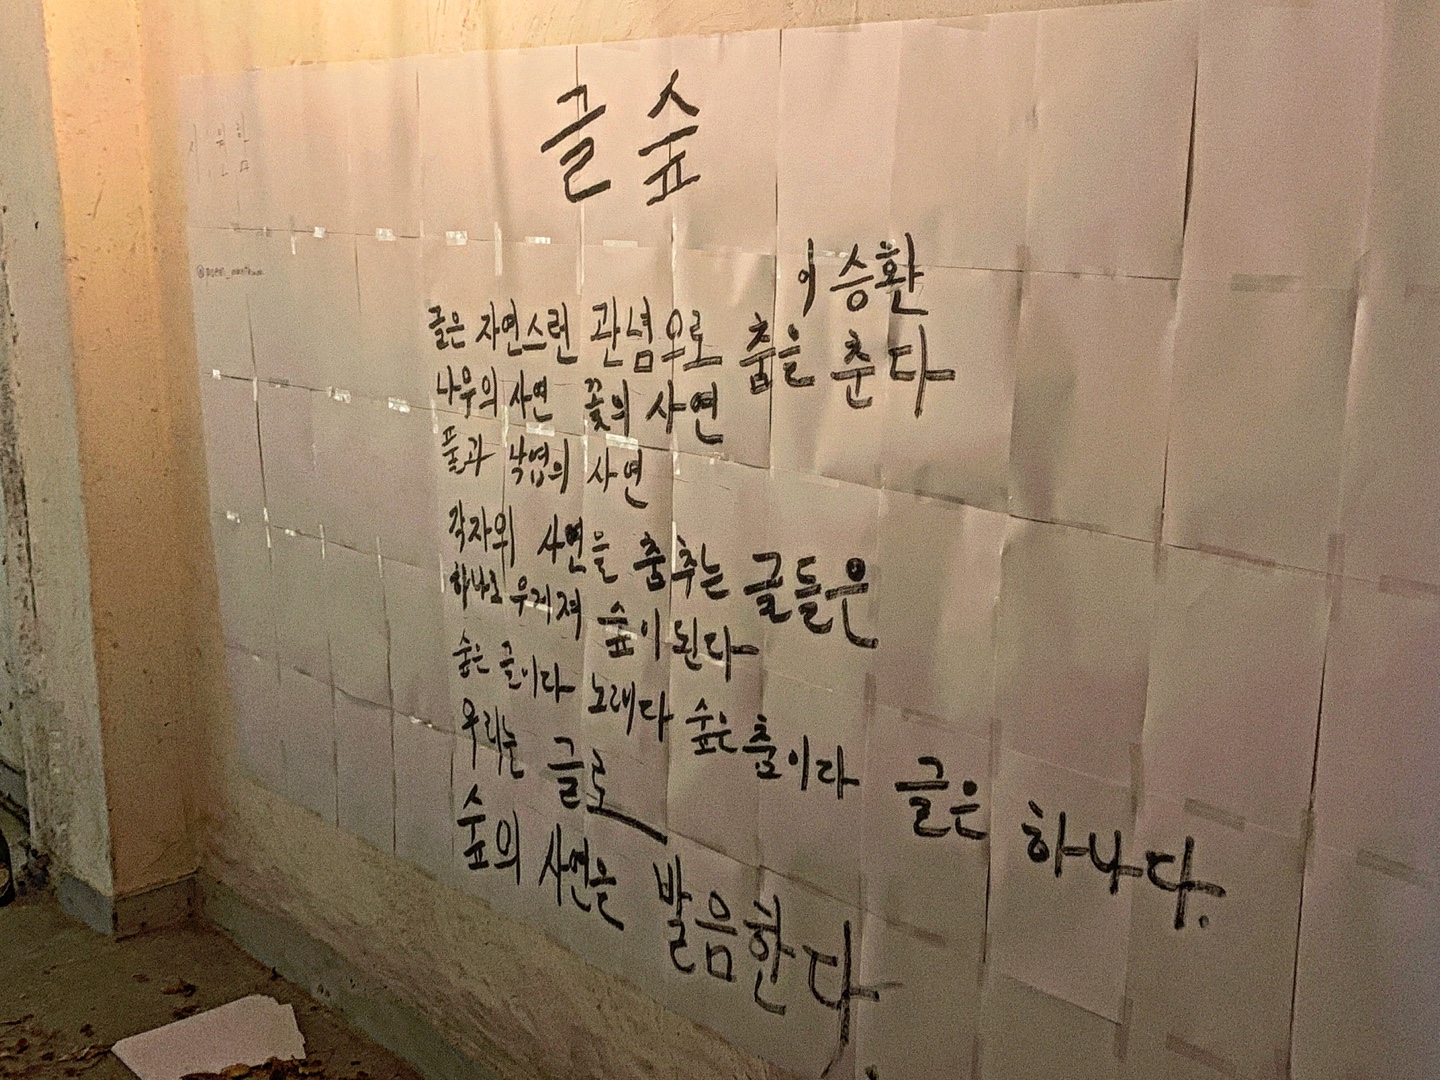 글숲
이승환
글은 자연스런 관념으로 춤을 춘다
나무의 사연 꽃의 사연
풀과 낙엽의 사연
각자의 사연을 춤추는 글들은
하나로 우거져 숲이 된다
숲은 글이다 노래다 숲은 춤이다 글은 하나다.
우리는 글로
숲의 사연을 발음한다.